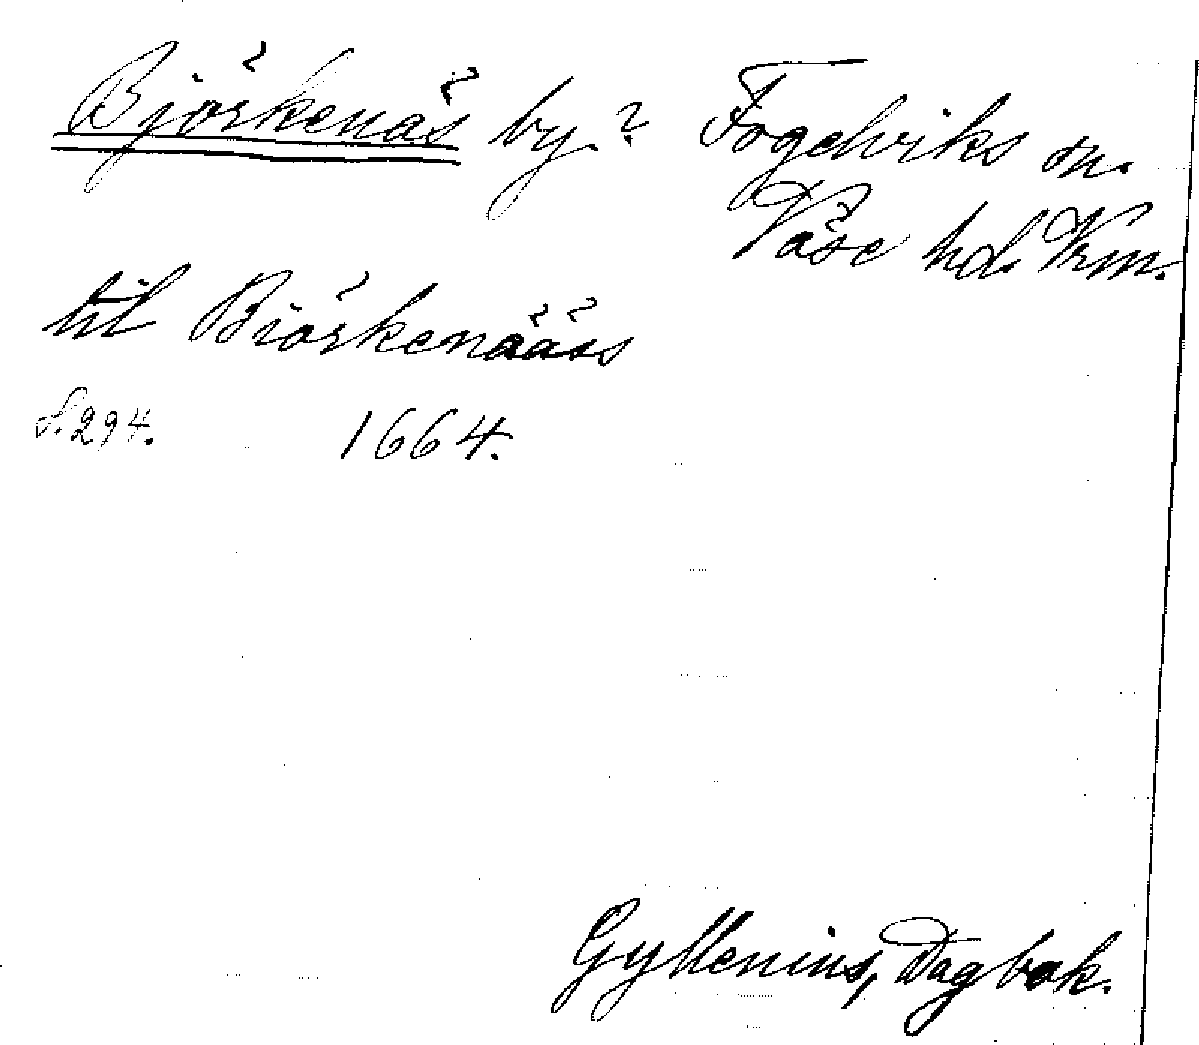 Björkenäs by? Fogelviks sn.
Väse hd. Vrm.
til Biörkenääss
S. 294. 1664.
Gyllenius, Dagbok.